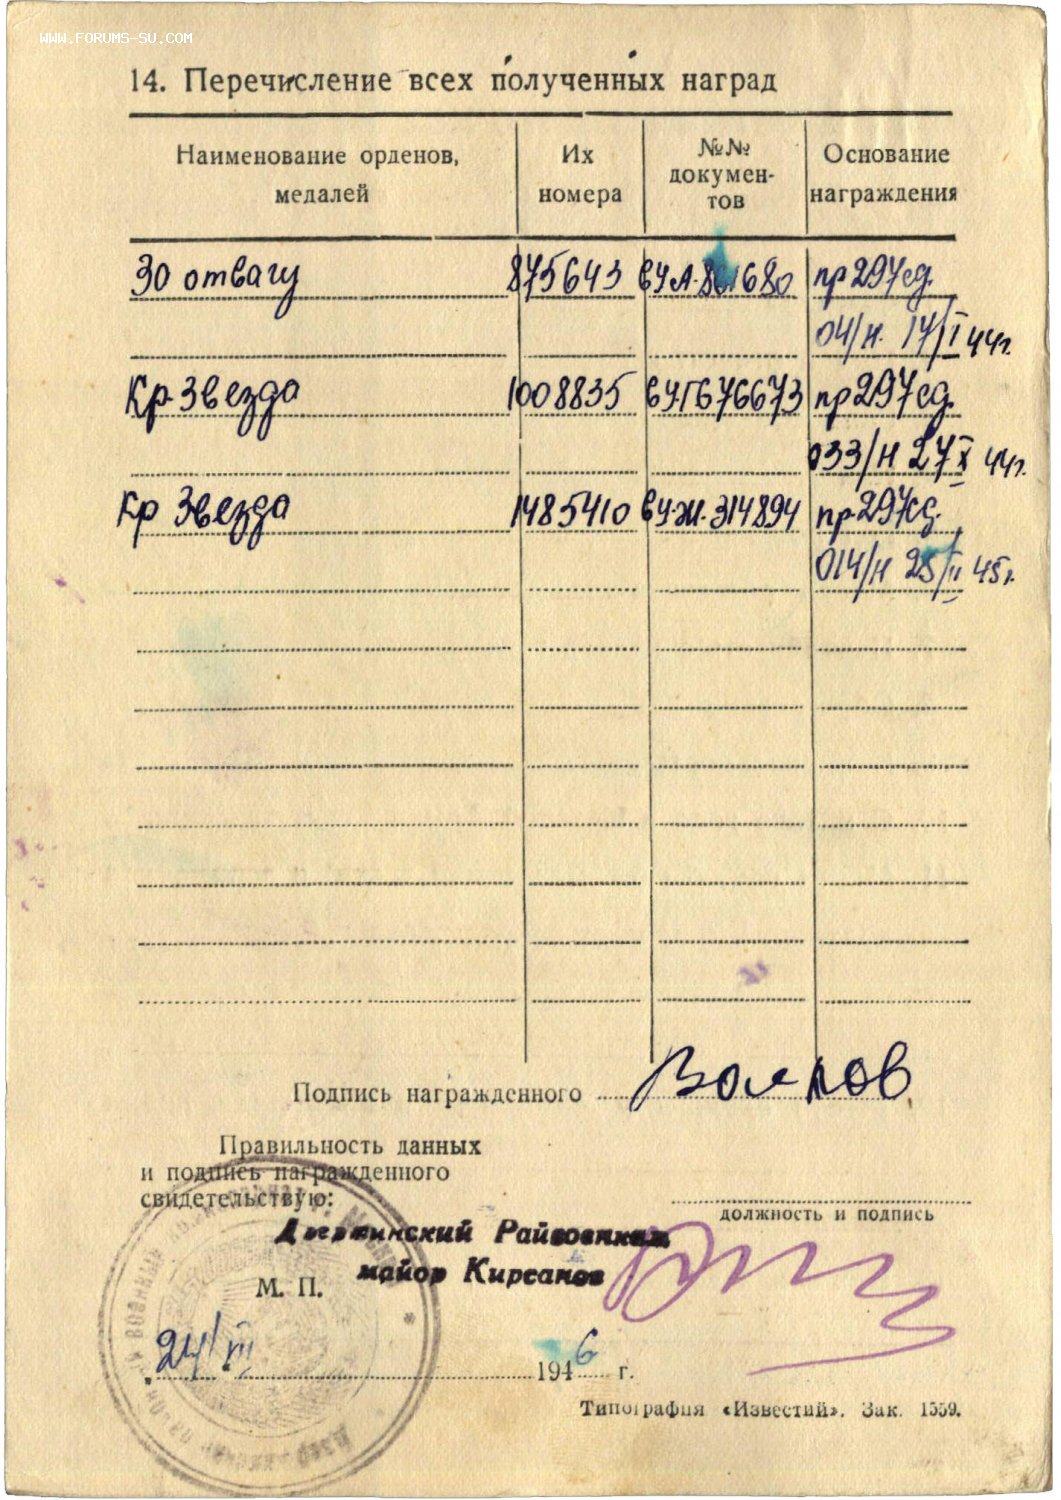 WWW.FORUMS-SU.COM
14. Перечисление всех полученных наград
Наименование орденов, медалей
Их номера
№№ докумен- тов
Основание награждения
Зо отвагу 875643 ВУ А. 861680 пр 297 сд.
04/н. 17/I 44г.
Кр Звезда 1008835 ВУ Г 676673 пр 297 сд.
033/н 27 X 44г.
Кр Звезда 1485410 ВУ-Ж. 314894 пр. 297 сд.
014/н 25/II 45г.
Подпись награжденного
Правильность данных
и подпись награжденного
свидетельствую:
должность и подпись
Дзержинский Райвоенком
майор Кирсанов
М. П.
24/XII 1946 г.
Типография «Известий». Зак. 1559.